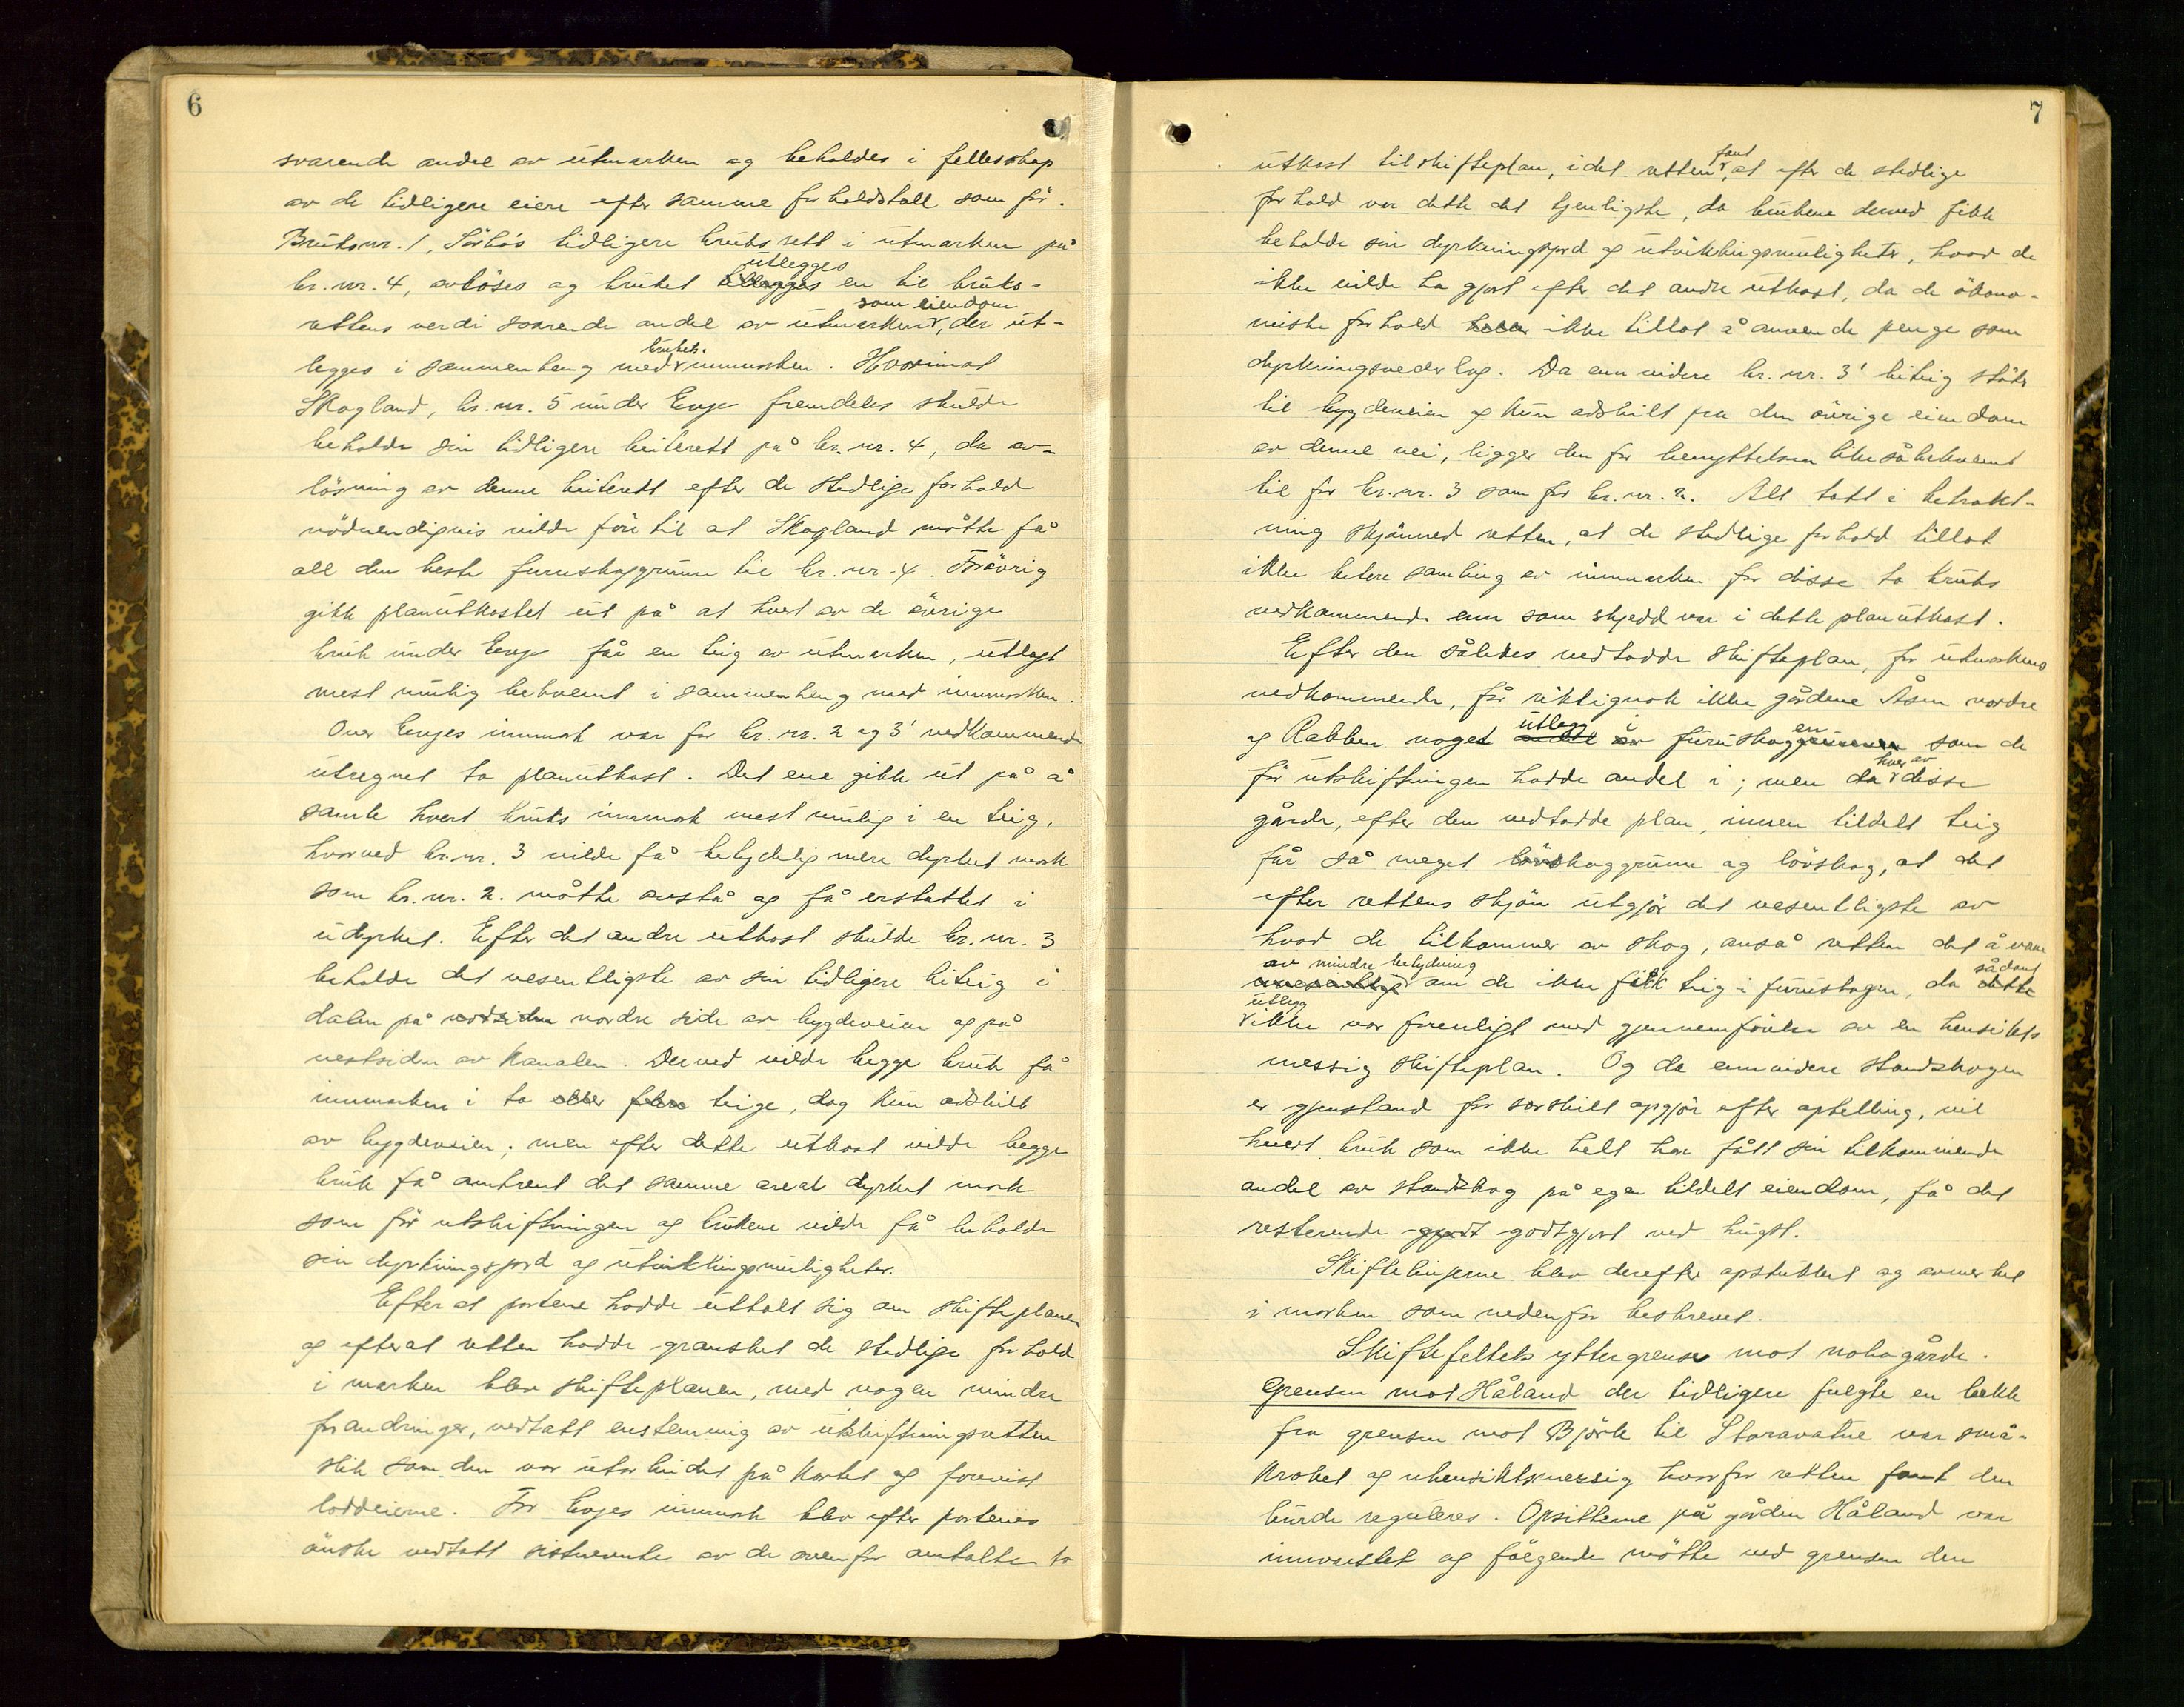 6
svarende andel av utmarken og beholdes i fellesskap
av de tidligere eiere efter samme forholdstall som før.
Bruksnr. 1, tidligere bruksrett i utmarken på
br. nr. 4, avløses og bruket utlegges en til bruks-
rettens verdi svarende andel av utmarken som eiendom, der ut-
legges i sammenheng med brukets innmarken. Hvorimot
Skogland, br. nr. 5 under Enge fremdeles skulde
beholde sin tidligere beiterett på br. nr. 4, da av-
løsning av denne beiterett efter de stedlige forhold
nødvendigvis vilde føre til at Skogland måtte få
all den beste furuskoggrunn til br. nr. 4. Forøvrig
gikk planutkastet ut på at hvert av de øvrige
bruk under Enge får en teig av utmarken, utlagt
mest mulig bekvemt i sammenheng med innmarken.
Over Enges innmark var for br. nr. 2 og 3' vedkommende
utregnet to planutkast. Det ene gikk ut på å
samle hvert bruks innmark mest mulig i en teig,
hvorved br. nr. 3 vilde få betydelig mere dyrket mark
som br. nr. 2. måtte avstå og få erstattet i
udyrket. Efter det andre utkast skulde br. nr. 3
beholde det vesentligste av sin tidligere biteig i
dalen på nordre side av bygdeveien og på
vestsiden av Kanalen. Derved vilde begge bruk få
innmarken i to eller flere teige, dog kun adskilt
av bygdeveien; men efter dette utkast vilde begge
bruk få omtrent det samme areal dyrket mark
som før utskiftningen og brukene vilde få beholde
sin dyrkningsjord og utviklingsmuligheter.
Efter at partene hadde uttalt sig om skifteplanen
og efterat retten hadde gransket de stedlige forhold
i marken blev skifteplanen, med nogen mindre
forandringer, vedtatt enstemmig av utskiftningsretten
slik som den var utarbeidet på kartet og forevist
loddeierne. For Enges innmark blev efter partenes
ønske vedtatt sistnevnte av de ovenfor omtalte to
7
utkast til skifteplan, idet retten fant, at efter de stedlige
forhold var dette det tjenligste, da brukene derved fikk
beholde sin dyrkningsjord og utviklingsmuligheter, hvad de
ikke vilde ha gjort efter det andre utkast, da de økono-
miske forhold heller ikke tillot å anvende penge som
dyrkningsvederlag. Da enn videre br. nr. 3' biteig støter
til bygdeveien og kun adskilt fra den øvrige eiendom
av denne vei, ligger den for benyttelsen like så bekvemt
til for br. nr. 3 som for br. nr. 2. Alt tatt i betrakt-
ning skjønned retten, at de stedlige forhold tillot
ikke bedre samling av innmarken for disse to bruks
vedkommende enn som skjedd var i dette planutkast.
Efter den således vedtadde skifteplan, for utmarkens
vedkommende, får riktignok ikke gårdene Åsen nordre
og Rabben noget utlegg i furuskogen som de
før utskiftningen hadde andel i; men da hver av disse
gårde, efter den vedtadde plan, innen tildelt teig
får så meget skoggrunn og løvskog, at det
efter rettens skjøn utgjør det vesentligste av
hvad de tilkommer av skog, anså retten det å være
av mindre betydning om de ikke fikk teig i furuskogen, da sådant
utlegg ikke var forenligt med gjennemførelse av en hensikts
messig skifteplan. Og da enn videre standskogen
er gjenstand for særskilt opgjør efter optelling, vil
hvert bruk som ikke helt har fått sin tilkommende
andel av standskog på egen tildelt eiendom, få det
resterende godtgjort ved hugst.
Skiftelinjerne blev derefter opstukket og avmerket
i marken som nedenfor beskrevet.
Skiftefeltets yttergrense mot nabogårde.
Grensen mot Håland der tidligere fulgte en bekk
fra grensen mot Bjørk til Storavatne var små-
kroket og uhensiktsmessig hvorfor retten fant den
burde reguleres. Opsitterne på gården Håland var
innvarslet og følgende møtte ved grensen den